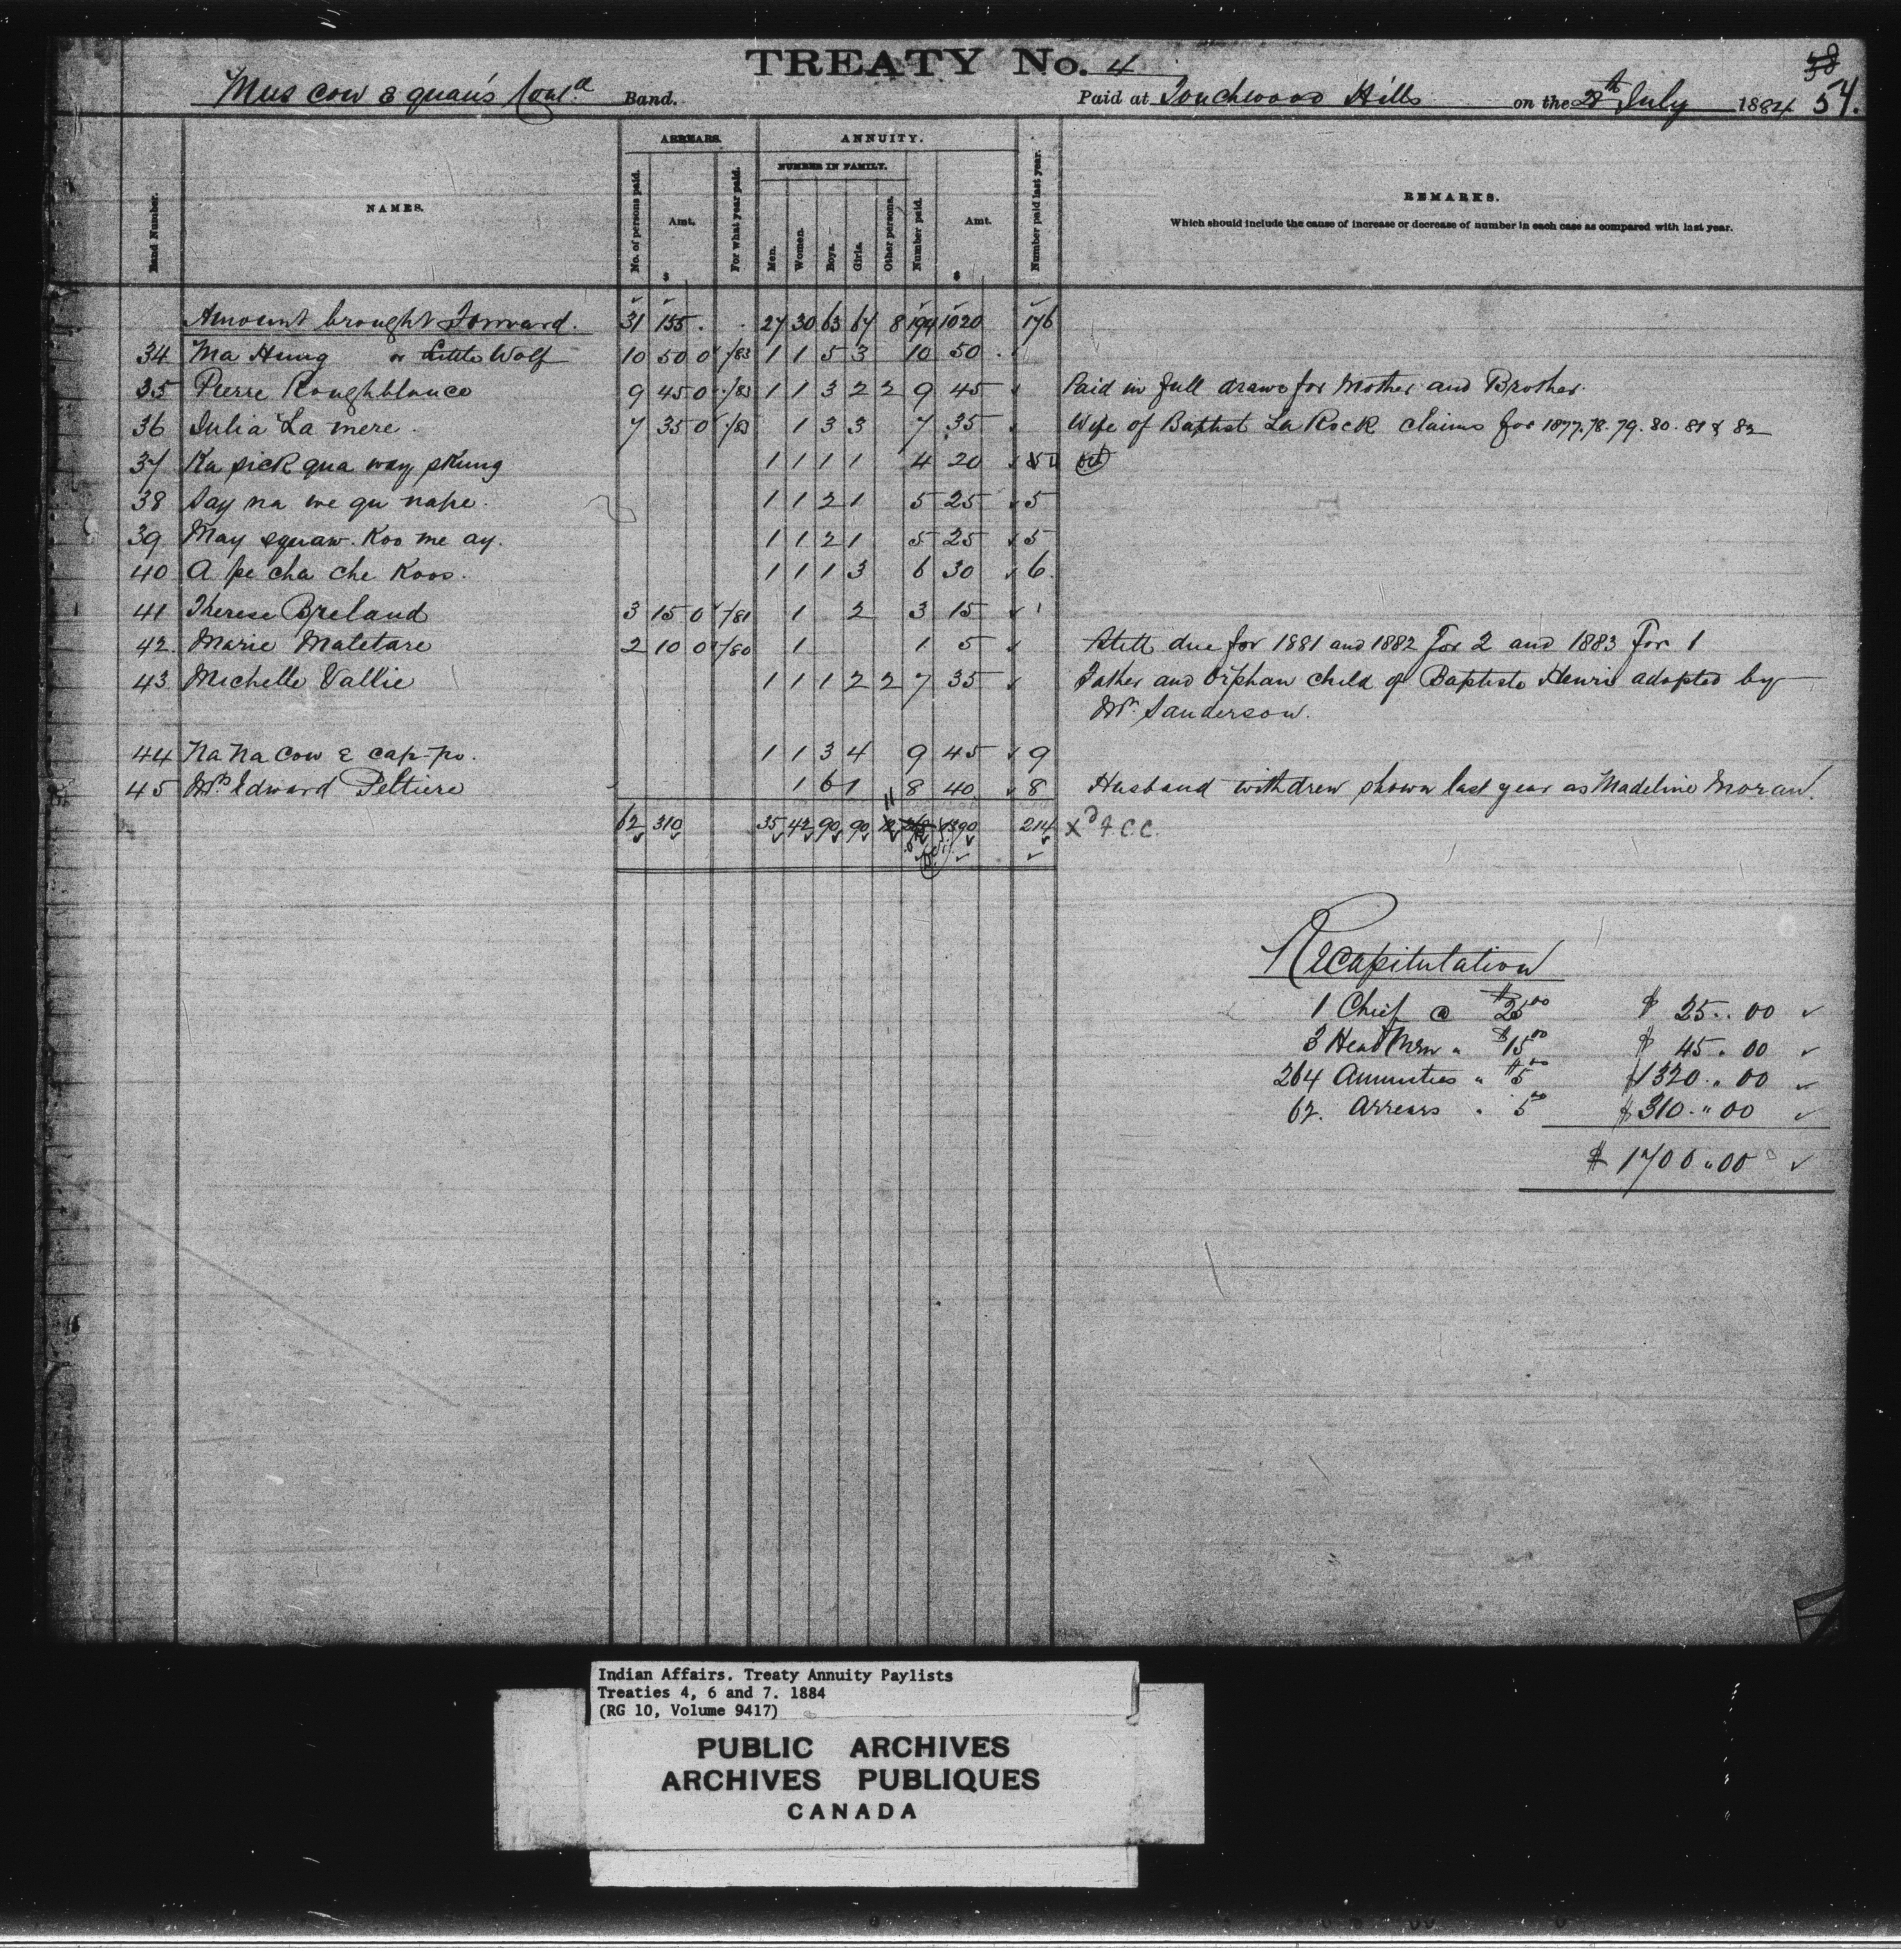 TREATY No. 4
58
54.
Mus cow e quan's Cont.d Band. Paid at Touchwood Hills on the 28th July 1884
Band Number. NAMES. ARREARS. No. of persons paid. Amt. $ For what year paid. ANNUITY. NUMBER IN FAMILY. Men. Women. Boys. Girls. Other persons. Number paid. Amt. $ Number paid last year. REMARKS.
Which should include the cause of increase or decrease of number in each case as compared with last year.
Amount brought Forward. 31 155. 27 30 63 67 8 194 1020 176
34 Ma Hung or Little Wolf 10 50 0 /83 1 1 5 3 10 50
35 Pierre Roughblance 9 45 0 /83 1 1 3 2 2 9 45 Paid in full draws for Mother and Brother.
36 Julia La mere. 7 35 0 /83 1 3 3 7 35 Wife of Baptist La Rock claims for 1877.78.79.80.81 & 82
37 Ka pick qua way skung 1 1 1 1 4 20
38 Say na we qu nape. 1 1 2 1 5 25 5
39 May squaw Koo me ay. 1 1 2 1 5 25 5
40 A pe cha che Koos. 1 1 1 3 6 30 6
41 Therese Breland 3 15 0 /81 1 2 3 15 1
42 Marie Maletare 2 10 0 /80 1 1 5 Still due for 1881 and 1882 For 2 and 1883 For 1
43 Michelle Vallie 1 1 1 2 2 7 35 Father and Orphan child of Baptiste Henri adopted by
Wm Sanderson.
44 Na Na cow e cap-po. 1 1 3 4 9 45 9
45 Mrs Edward Peltiere 1 6 1 8 40 8 Husband withdrew shown last year as Madeline Moran.
11
62 310 35 42 90 90 12 1390 214 Xd F.C.C.
Recapitulation
1 Chief @ $25.00 $ 25..00
3 Head Men " $15.00 $ 45.00
264 Annuities " $5.00 $1320.00
62. Arrears " 5.00 $310."00
$ 1700.00
Indian Affairs. Treaty Annuity Paylists
Treaties 4, 6 and 7. 1884
(RG 10, Volume 9417)
PUBLIC ARCHIVES
ARCHIVES PUBLIQUES
CANADA